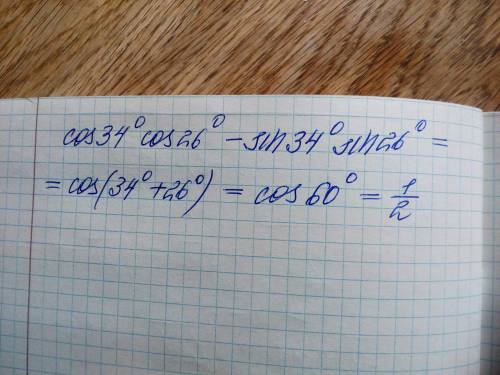 cos34°cos26° - sin34°sin26° =
= cos(34°+26°) = cos60° = 1/2